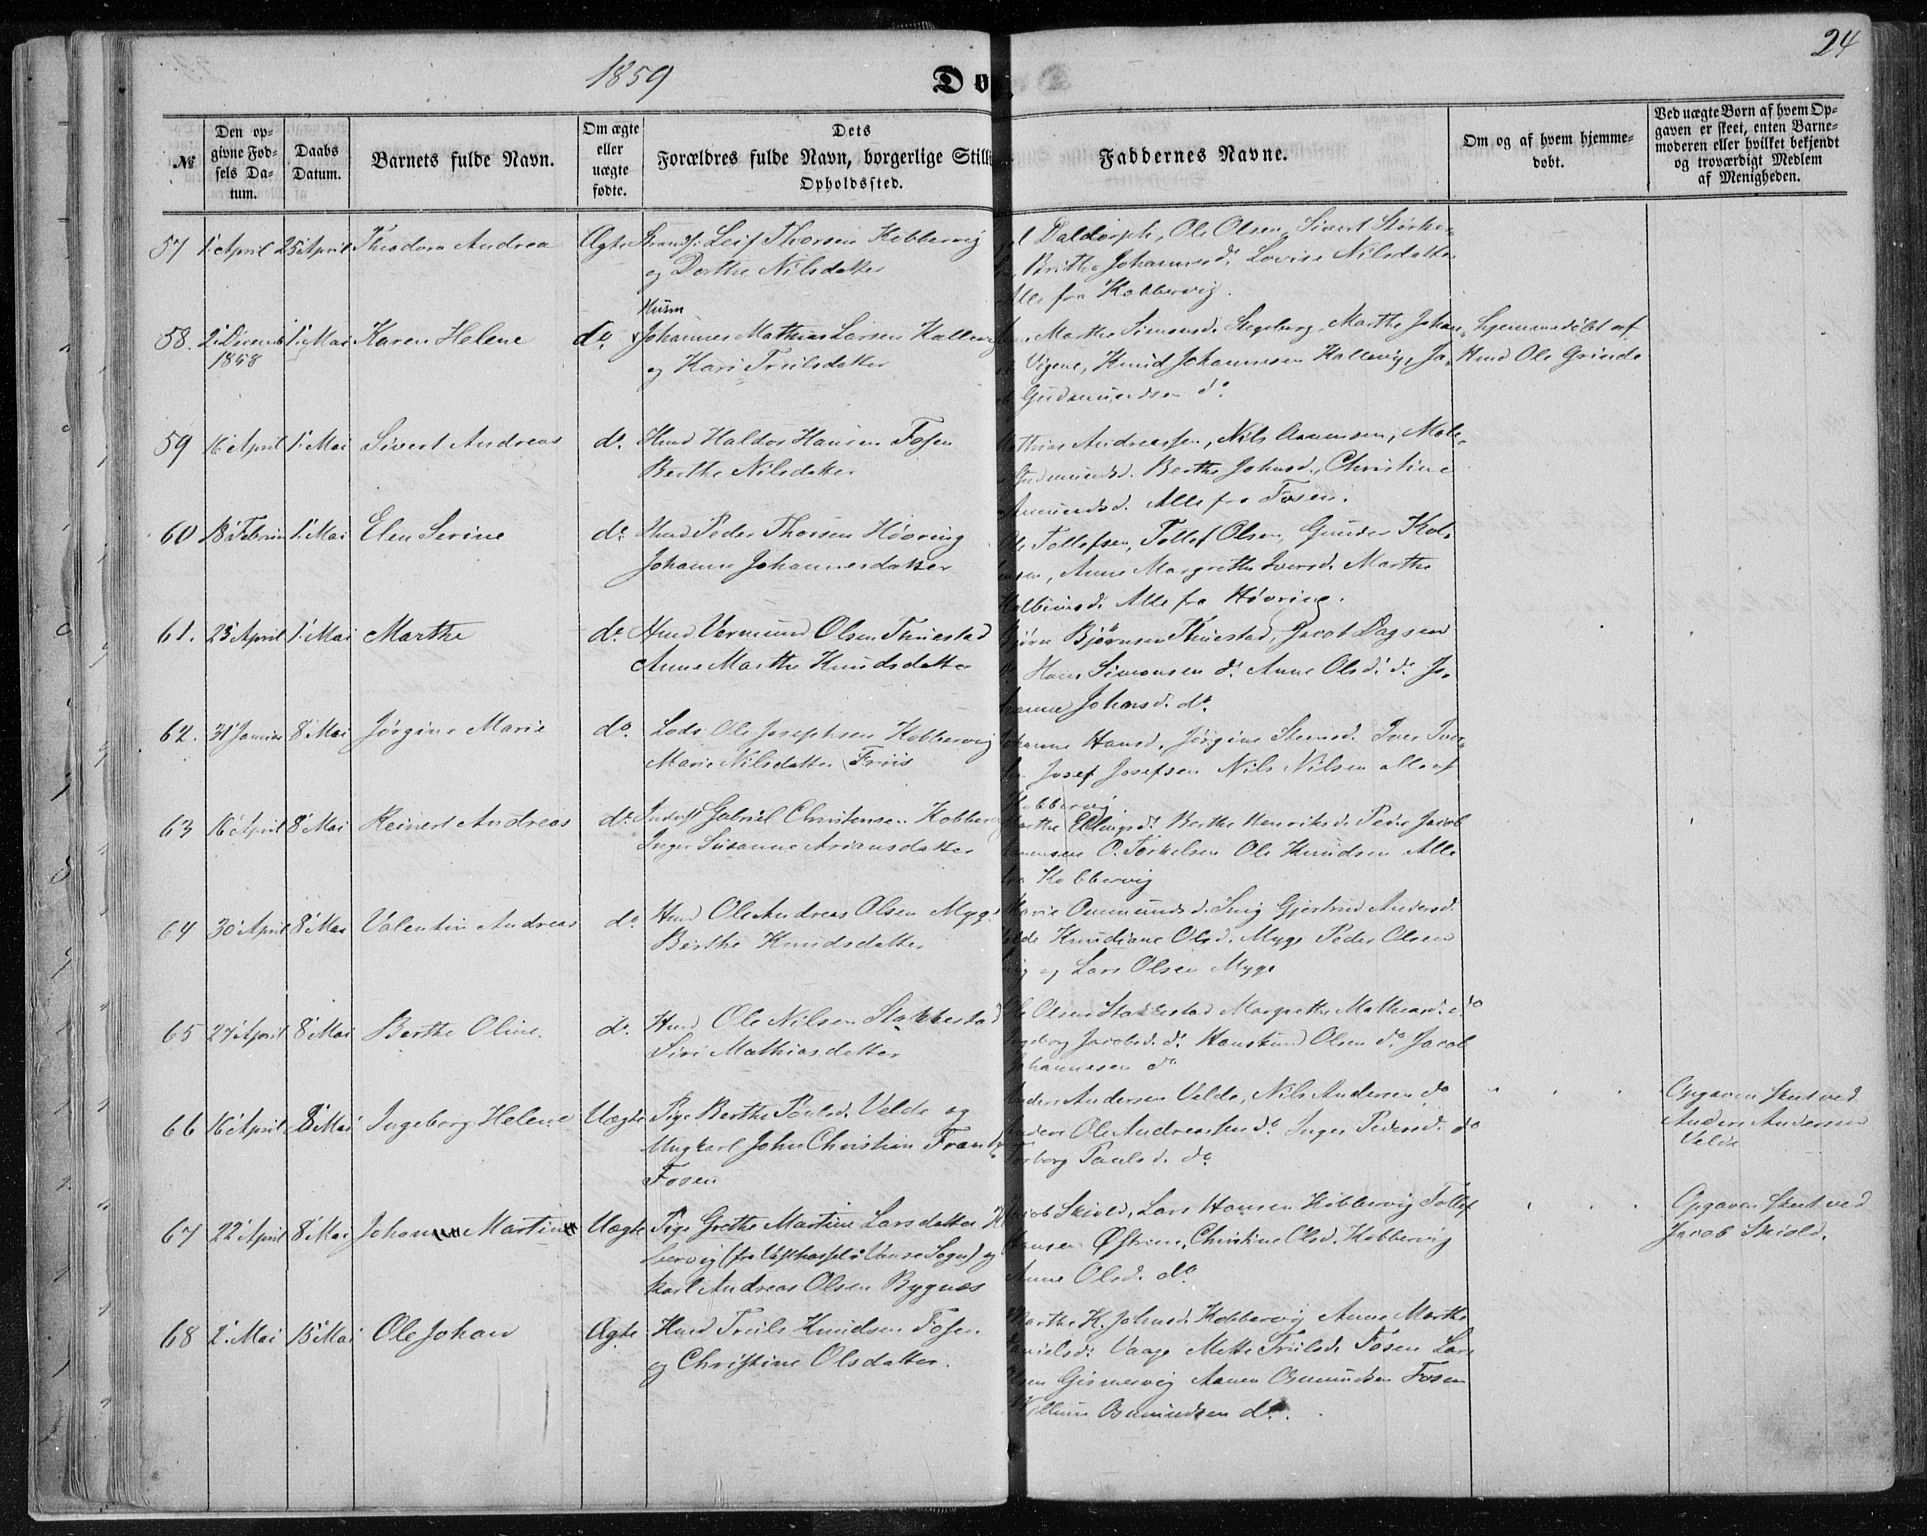 1859
Dø
24
№
Den op-
givne Fød-
sels Da-
tum.
Daabs
Datum.
Barnets fulde Navn.
Om ægte
eller
uægte
fødte.
Dets
Forældres fulde Navn, borgerlige Still
Opholdssted.
Faddernes Navne.
Om og af hvem hjemme-
døbt.
Ved uægte Børn af hvem Op-
gaven er skeet, enten Barne-
moderen eller hvilket bekjendt
og troværdigt Medlem
af Menigheden.
57 1 April 25 April Theodora Andrea Ægte Leif Thorsen Kobbervig
og Dorthe Nilsdatter
Daldorph, Ole Olsen, Sivert Størke-
Brithe Johannesd. Lovise Nilsdatter
Alle fra Kobbervig.
58. 2 Decemb 1 Mai Karen Helene do. Husm
1858
Johannes Mathias Larsen Kallevig
og Kari Trulsdatter
Marthe Simonsd. Stegeberg, Marthe Johan-
Vigene, Knud Johannesen Kallevig, Ja-
Gudmundsen do
Hjemmedøbt af
Hmd Ole Grinde
59 16 April 1 Mai Sivert Andreas do. Hmd Haldor Hansen Fosen
Berthe Nilsdatter
Mathias Andreassen, Nils Aamensen, Male
Gudmundsd. Berthe Johnsd., Christine
Amundsd. Alle fra Fosen.
60 18 Februar 1 Mai Elen Serine do. Hmd Peder Thorsen Høvring
Johanne Johannesdatter
Ole Tollefsen, Tollef Olsen, Gunder Kol-
Anne Margrethe Iversd. Marthe
Kolbensd. Alle fra Høvring.
61. 23 April 1 Mai Marthe do. Hmd Vermund Olsen Thuestad
Anne Marthe Knudsdatter
Bjørn Bjørnsen Thuestad, Jacob Dagsen
do Hans Simonsen do. Anne Olsd. do. Jo-
hanne Johnsd. do.
62. 31 Januar 8 Mai Jørgine Marie do. Lods Ole Josephsen Kobbervig
Marie Nilsdatter Friis
Johanne Hansd. Jørgine Steensd. Iver Iver-
Josef Josefsen Nils Nilsen alle af
Kobbervig.
63 16 April 8 Mai Reinert Andreas do. Gabriel Christensen Kobber
Inger Susanne Ariansdatter
Marthe Ellingsd. Berthe Henriksd. Peder Jacob
O. Torkelsen Ole Knudsen Alle
fra Kobbervig
64 30 April 8 Mai Valentin Andreas do. Hmd Ole Andreas Olsen Myge
Berthe Knudsdatter
Marie Ommundsd. Snig Gjertrud Andersd.
Velde Knudiane Olsd. Myge Peder Olsen
Snig og Lars Olsen Myge
65 27 April 8 Mai Berthe Oline. do. Hmd Ole Nilsen Stakkestad
Siri Mathiasdatter
Ole Olsen Stakkestad Margrethe Mathiasd. do
Ingeborg Jacobsd. do. Hansknud Olsen do. Jacob
Johannesen do
66 16 April 8 Mai Ingeborg Helene Uægte Pige Berthe Poulsd. Velde og
Ungkarl John Christian Frantz
Fosen
Anders Andersen Velde, Nils Andersen do
Ole Andreassen do. Inger Pedersd. do
Torborg Paulsd. do.
Opgaven skeet ved
Anders Andersen
Velde
67 22 April 8 Mai Johan Martin Uægte Pige Grethe Martine Larsdatter K
bervig (fra Vestharsfel i Vanse Sogn) og
Karl Andreas Olsen Bygnes
Jacob Skiold, Lars Hansen Kobbervig Tollef
Hansen Østrem, Christine Olsd. Kobbervig
Anne Olsd. do
Opgaven skeet ved
Jacob Skiold.
68 2 Mai 15 Mai Ole Johan Ægte Hmd Truls Knudsen Fosen
og Christine Olsdatter.
Marthe K. Johnsd. Kobbervig Anne Marthe
Danielsd. Vaage Mette Trulsd. Fosen Lars
Olsen Gismervig Aanen Osmundsen Fosen
Osmundsen do.